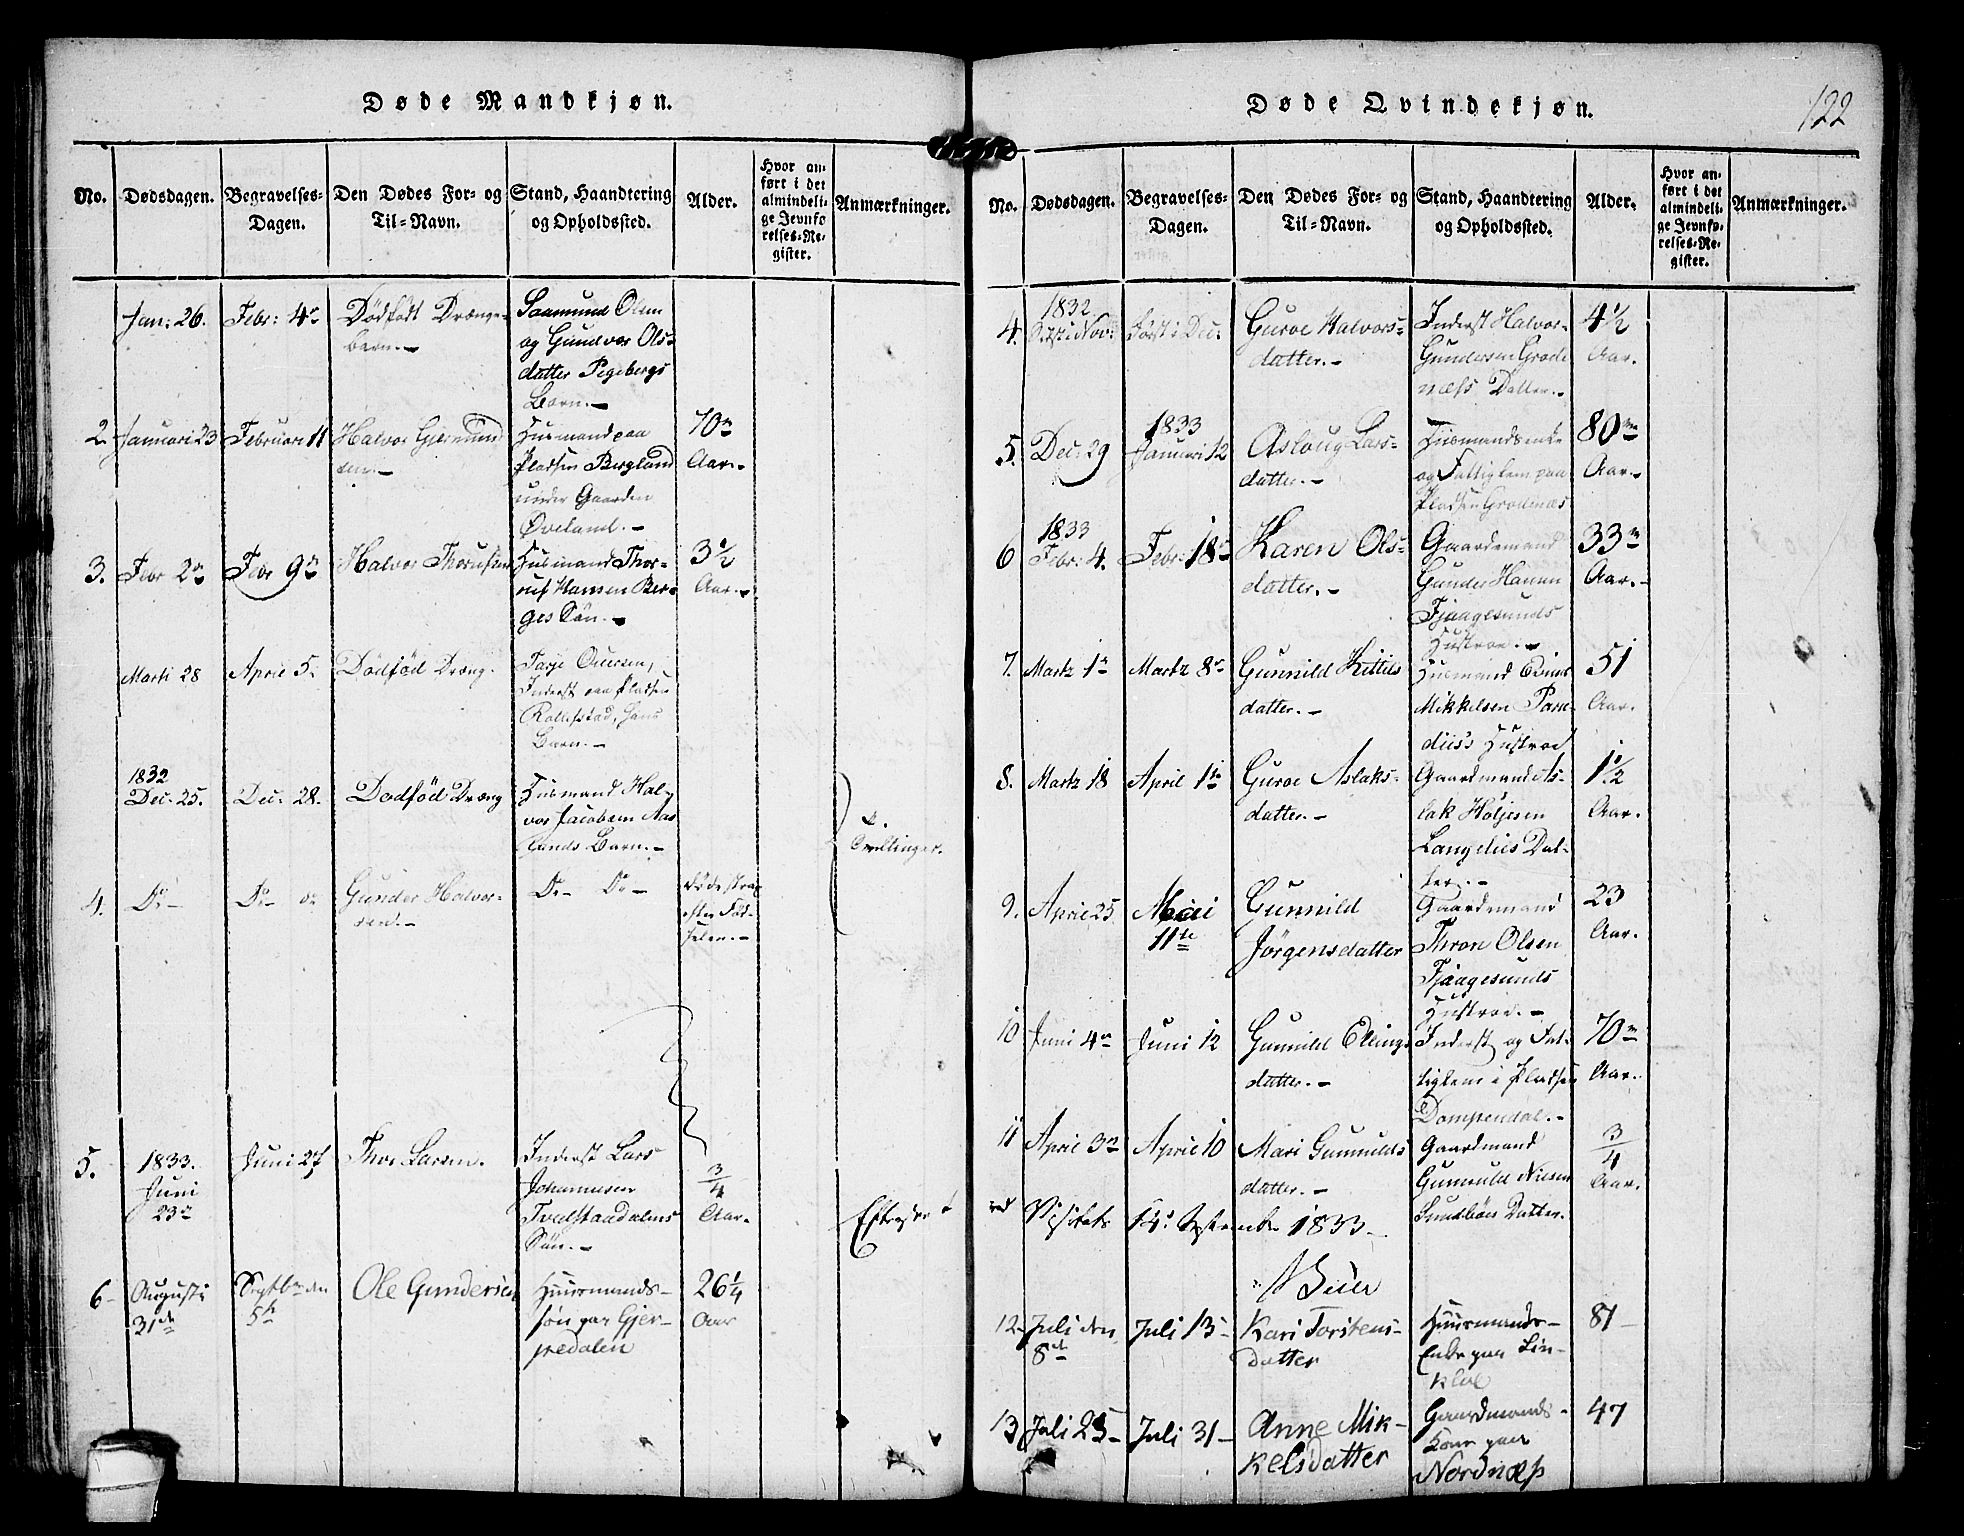 Døde Mandkjøn.
No. Dødsdagen. Begravelses-Dagen. Den Dødes For- og Til-Navn. Stand, Haandtering og Opholdssted. Alder. Hvor anført i det almindelige Jevnførelses-Register. Anmærkninger.
Jan: 26. Febr: 4de Dödfödt Drænge-
barn.-
Saamund Olsen
og Gundvor Ols-
datter Pegebergs
Barn.-
2. Januari 23 Februari 11 Halvor Gjermund
sen.-
Huusmand paa
Pladsen Bergland
under Gaarden
Øveland.-
70
Aar.-
3. Febr 2den Febr 9de Halvor Thorufsen
Huusmand Thor-
ruf Hansen Ber-
ges Sön.-
3 1/2
Aar.-
Marti 28 April 5. Dödföd Dreng.
Tarje
Inderst paa Pladsen
hans
Barn.-
1832
Dec. 25. Dec. 28. Dodföd Dræng
Huusmand Hal-
vor Jacobsen Aas
lands Barn.-
Tvillinger.
4. Do- Do- Gunder Halvor-
sen.-
Do- Do-
döde strax
efter Föd-
selen.-
5. 1833.
Juni
23de
Juni 27 Thor Larsen.
Inderst Lars
Johannesen
Tvedstaadalens
Sön.-
3/4
Aar.
Efterseet
6- Augusti
31te
Septbr den
5te
Ole Gundersen
Huusmands-
søn paa Gjer-
pedalen
26 1/4
Aar
Døde Qvindekjøn.
122
No. Dødsdagen. Begravelses-Dagen. Den Dødes For- og Til-Navn. Stand, Haandtering og Opholdssted. Alder. Hvor anført i det almindelige Jevnførelses-Register. Anmærkninger.
4. 1832
Sidst i Nov: Först i Dec: Guroe Halvors-
datter.-
Inderst Halvor
Gundersen Grode
næss Datter.-
4 1/2
Aar.
5. Dec: 29 1833
Januari 12 Aslaug Lars-
datter.-
Huusmandsenke
og Fattiglem paa
Pladsen Grodnæs
80
Aar.-
6 1833
Febr: 4. Febr: 18 Karen Ols-
datter.-
Gaardemand
Gunder Hansen
Fjaagesunds
Hustroe.-
33
Aar.-
7. Martz 1ste Martz 8de Gunnild Kittils
datter.-
Huusmand Evind
Mikkelsen
Hustroe
51
Aar.
8. Martz 18 April 1ste Guroe Aslaks-
datter.-
Gaardmand As-
lak Höljesen
Langelies Dat-
ter.-
1 1/2
Aar.
9. April 25 Maii
11te
Gunnild
Jörgensdatter
Gaardemand
Thron Olsen
Fjaagesunds
Hustroe.-
23
Aar.
10 Juni 4de Juni 12 Gunnild Elling-
datter.-
Inderst og Fat-
tiglem i Pladsen
Dampendal.-
70
Aar.
11 April 3de April 10 Mari Gunnulds
datter.-
Gaardmand
Gunnuld Nielsen
Sundböes Datter.
3/4
Aar.
ved Visitats 14. September 1833.
12- Juli den
8de
Juli 13- Kari Torstens-
datter
Huusmands-
Enke paa Lin-
klöe
81-
13 Juli 25- Juli 31- Anne Mik-
kelsdatter
Gaardmands-
Kone paa
Nordnæss
47